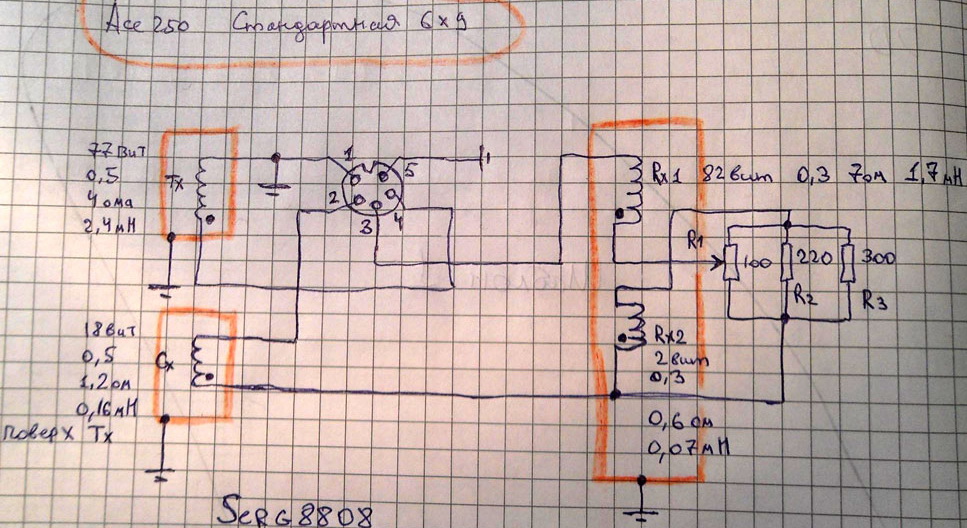 Ace 250 Стандартная 6x9
77 вит
0,5
4 ома
2,4 мН
Tx
1
5
2
3
4
Rx1 82 вит 0,3 7 ом 1,7 мН
R1
100
220
300
R2
R3
18 вит
0,5
1,2 ом
0,16 мН
поверх Tx
Cx
Rx2
2 вит
0,3
0,6 ом
0,07 мН
SERG8808